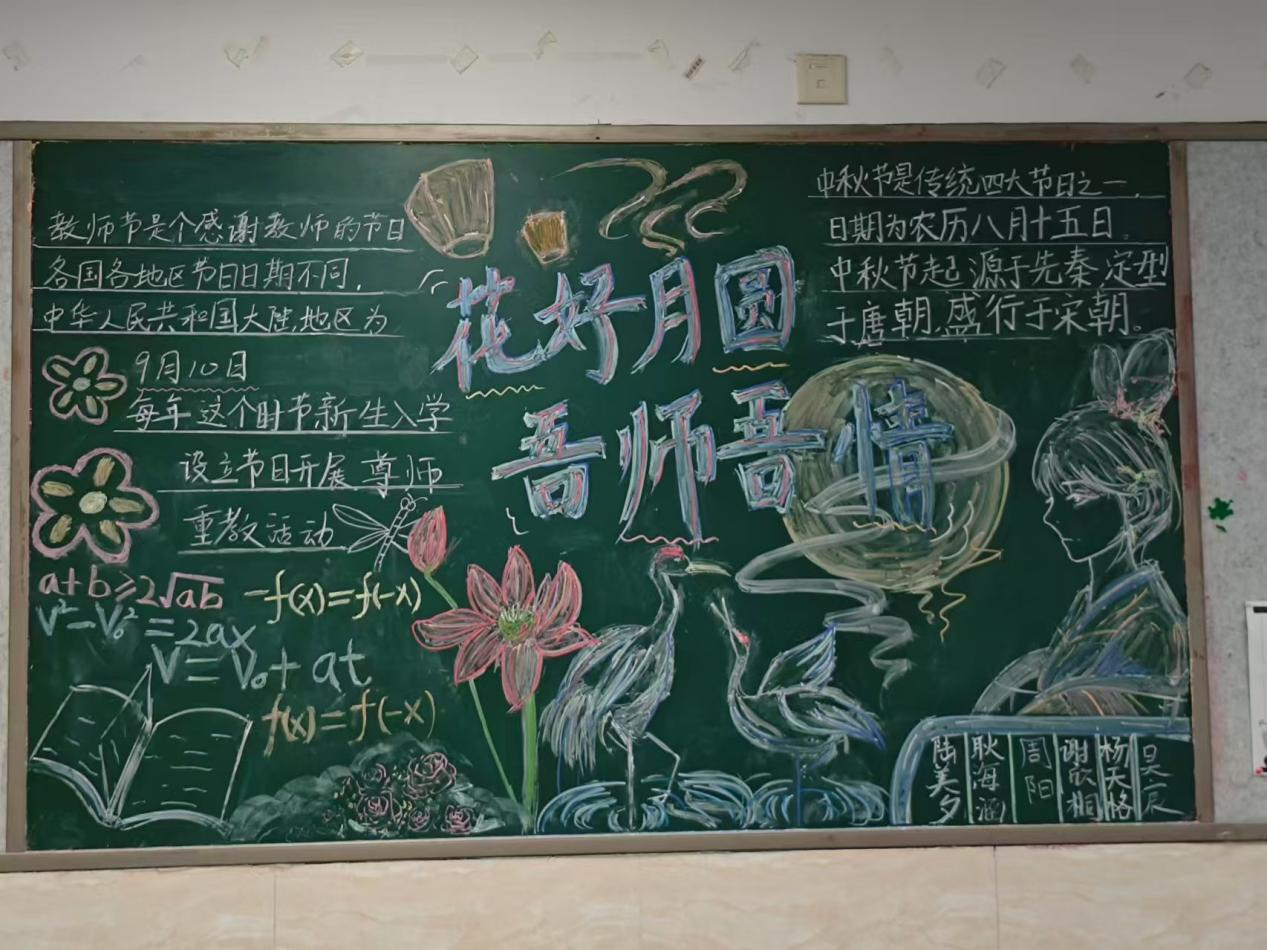 花好月圆
吾师吾情
教师节是个感谢教师的节日
各国各地区节日日期不同,
中华人民共和国大陆地区为
9月10日
每年这个时节新生入学
设立节日开展尊师
重教活动
a+b≥2√ab
-f(x)=f(-x)
v²-v₀²=2ax
v=v₀+at
f(x)=f(-x)
中秋节是传统四大节日之一,
日期为农历八月十五日.
中秋节起源于先秦,定型
于唐朝,盛行于宋朝。
陆美夕
耿海涵
周阳
谢欣桐
杨天格
吴辰